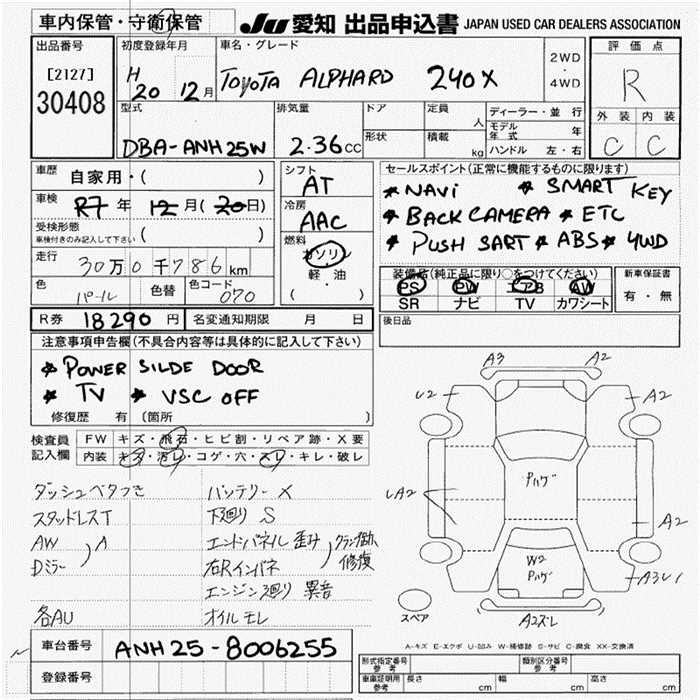 車内保管・守衛保管
JU 愛知 出品申込書 JAPAN USED CAR DEALERS ASSOCIATION
出品番号
[2127]
30408
初度登録年月
H 20 12 月
車名・グレード
TOYOTA ALPHARD 240X
2WD
・
4WD
評価点
R
外装 内装
C C
型式
DBA-ANH25W
排気量
2.36 cc
ドア
形状
定員
人
積載
kg
ディーラー・並行
モデル年式 年
ハンドル 左・右
車歴
自家用・( )
車検
R7 年 12 月 (20日)
受検形態
車検付きのみ記入して下さい ( )
走行
30万0千786km
色
パール
色替
色コード
070
シフト
AT
冷房
AAC
燃料
ガソリン
軽・油
( )
セールスポイント(正常に機能するものに限ります)
* NAVi * SMART KEY
* BACK CAMERA * ETC
* PUSH SART * ABS * 4WD
装備品(純正品に限り○をつけてください)
PS PW エアB AW
SR ナビ TV カワシート
新車保証書
有・無
R券 18290 円
名変通知期限 月 日
後日品
注意事項申告欄(不具合内容等は具体的に記入して下さい)
* POWER SILDE DOOR
* TV * VSC OFF
修復歴 有 〔箇所 〕
検査員記入欄
FW キズ・飛石・ヒビ割・リペア跡・X要
内装 キズ・汚レ・コゲ・穴・スレ・キレ・破レ
ダッシュベタつき
スタッドレスT
AW
Dミラー
A
各AU
バッテリーX
下廻りS
エンドパネル歪み
右Rインパネ
修復
エンジン廻り 異音
オイルモレ
A3 A2
U2 A2
Pハゲ
LA2 A2
W2
Pハゲ
A3U1
A2ズレ
スペア
A-キズ E-エクボ U-凹み W-補修跡 S-サビ C-腐食 XX-交換済
車台番号
ANH25-8006255
登録番号
形式指定番号 参考
類別区分番号 参考
車庫証明用 参考
長さ cm 幅 cm 高さ cm